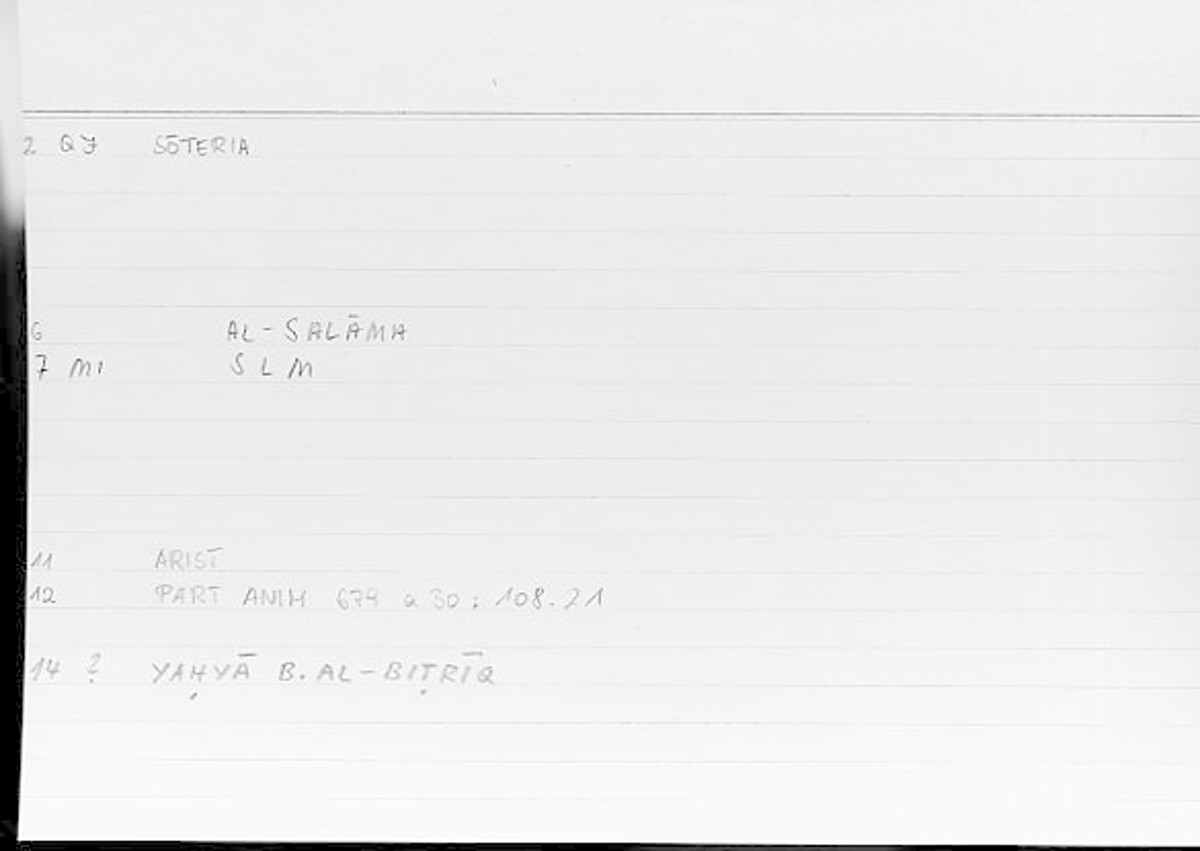 2 QY SŌTERIA
6 AL-SALĀMA
7 MI S L M
11 ARIST
12 PART ANIM 679 a 30 : 108.21
14 ? YAḤYĀ B. AL-BIṬRĪQ